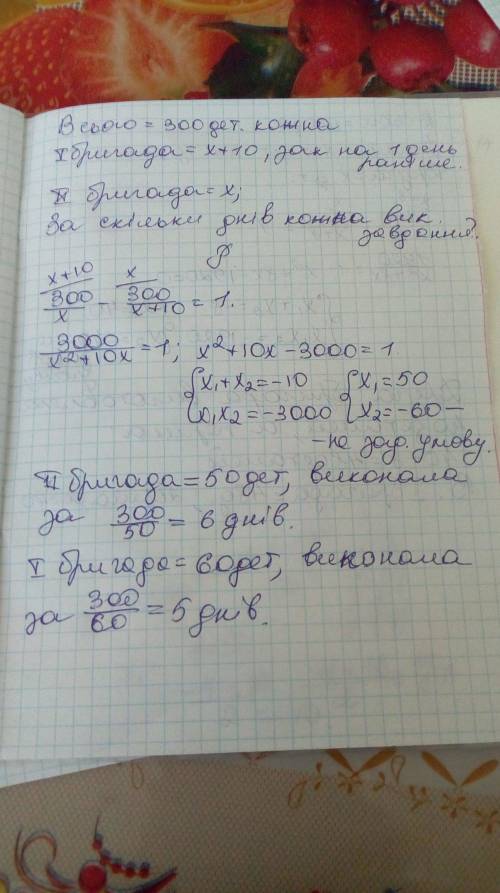 Всього = 300 дет. кожна
I бригада = x+10, зак на 1 день
раніше.
II бригада = x;
За скільки днів кожна вик.
завдання?
P
x+10 x
300/x - 300/x+10 = 1.
3000/x²+10x = 1; x²+10x-3000=1
{x₁+x₂=-10 {x₁=50
x₁x₂=-3000 x₂=-60 -
- не зад. умову.
II бригада = 50 дет, виконала
за 300/50 = 6 днів.
I бригада = 60 дет, виконала
за 300/60 = 5 днів.